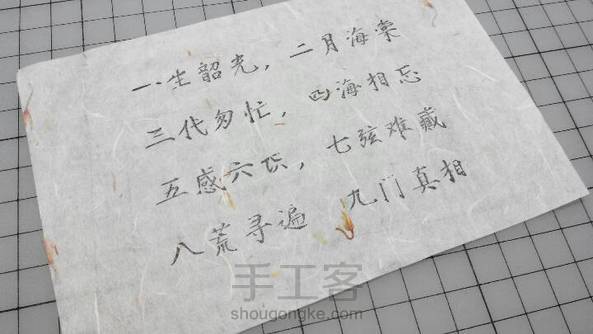 一生韶光，二月海棠
三代匆忙，四海相忘
五感六识，七弦难藏
八荒寻遍 九门真相
手工客
shougongke.com